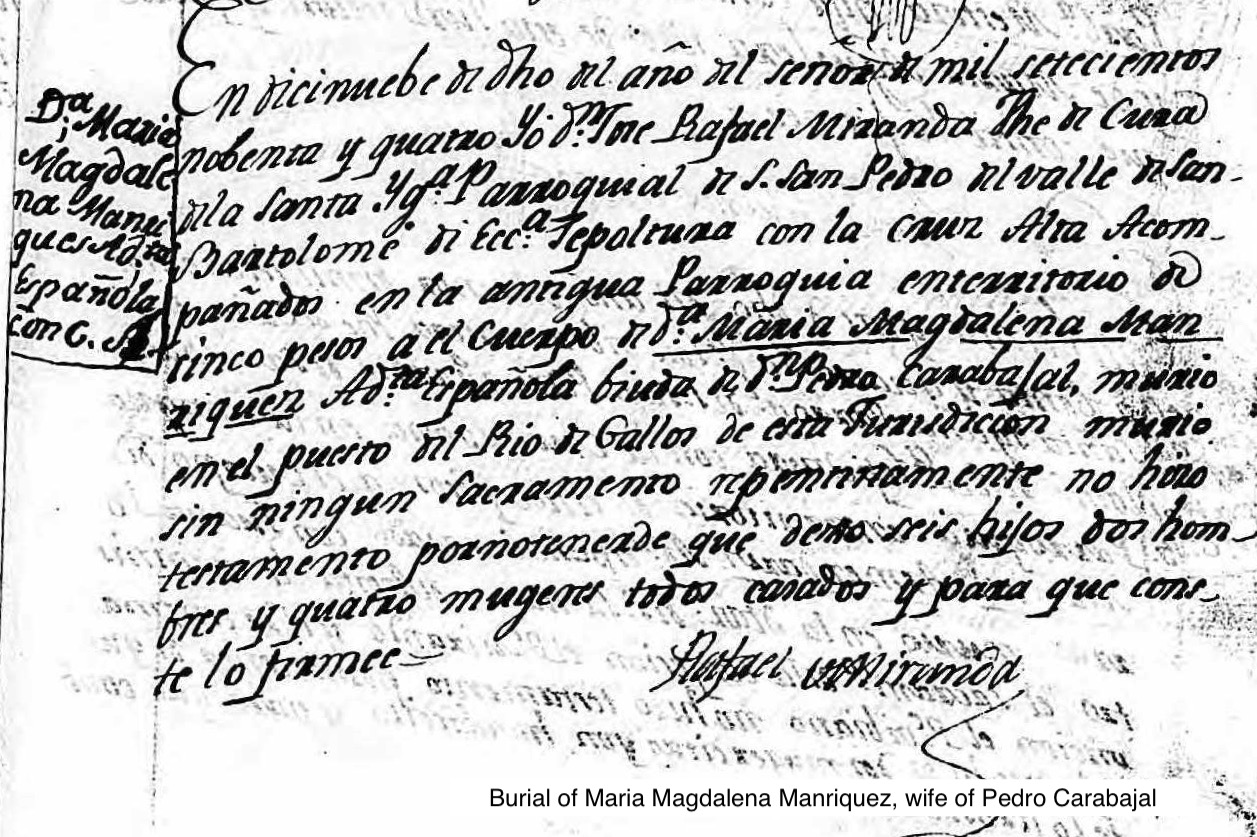 Dª Maria
Magdale
na Manri
ques Adta
Española
con C. A
En dicinuebe de dho del año del señor de mil setecientos
nobenta y quatro Yo dn Jose Rafael Miranda The de Cura
dela Santa Ygª Parroquial de S. San Pedro del valle de San-
Bartolome di Eccª Sepoltura con la Cruz Alta Acom-
pañados en la antigua Parroquia enterritorio de
cinco pesos a el Cuerpo de dª Maria Magdalena Man
riquez Adta Española biuda de dn Pedro Carabajal, murio
en el puesto del Rio de Gallos de esta Jurisdicion murio
sin ningun Sacramento repentinamente no hizo
testamento pornotenerde que dexo seis hijos dos hom-
bres y quatro mugeres todos casados y para que cons-
te lo firmee
Rafael Miranda
Burial of Maria Magdalena Manriquez, wife of Pedro Carabajal